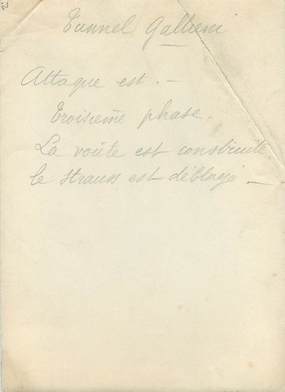 Tunnel Gallieni
Attaque est. –
Troisième phase.
La voûte est construite
le strauss est déblayé –